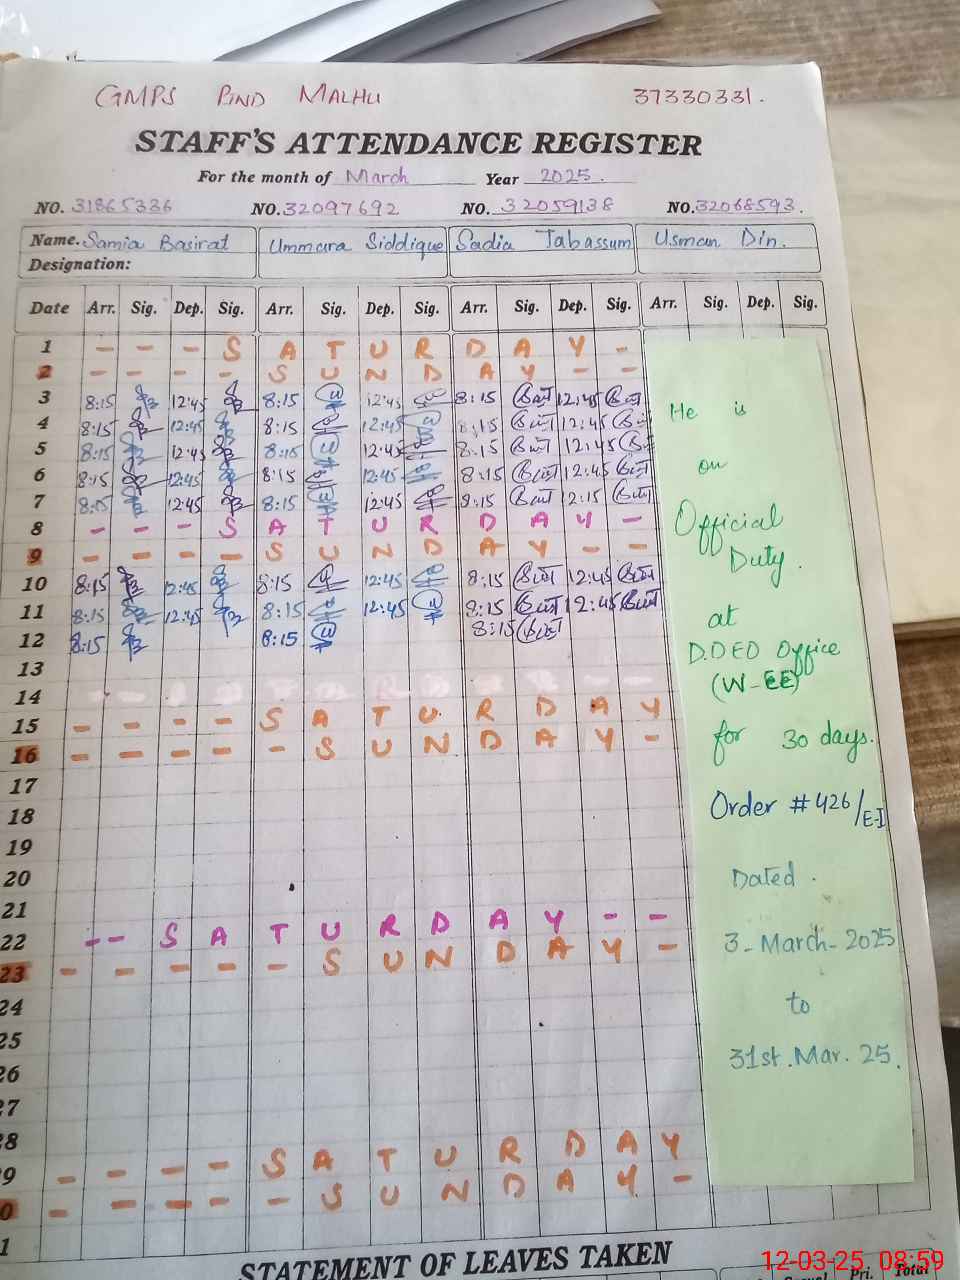 GMPS PIND MALHU 37330331.
STAFF'S ATTENDANCE REGISTER
For the month of March Year 2025.
NO. 31865336 NO. 32097692 NO. 32059138 NO. 32068593.
Name. Samia Basirat Ummara Siddique Sadia Tabassum Usman Din.
Designation:
Date Arr. Sig. Dep. Sig. Arr. Sig. Dep. Sig. Arr. Sig. Dep. Sig. Arr. Sig. Dep. Sig.
1 - - - S A T U R D A Y -
2 - - - - S U N D A Y - -
3 8:15 12:45 8:15 12:45 8:15 12:45
4 8:15 12:45 8:15 12:45 8:15 12:45
5 8:15 12:45 8:15 12:45 8:15 12:45
6 8:15 12:45 8:15 12:45 8:15 12:45
7 8:15 12:45 8:15 12:45 8:15 12:15
8 - - - S A T U R D A Y -
9 - - - - S U N D A Y - -
10 8:15 12:45 8:15 12:45 8:15 12:45
11 8:15 12:45 8:15 12:45 8:15 12:45
12 8:15 8:15 8:15
13
14
15 - - - - S A T U R D A Y
16 - - - - - S U N D A Y -
17
18
19
20
21
22 - - S A T U R D A Y - -
23 - - - - - S U N D A Y -
24
25
26
27
28
9 - - - - S A T U R D A Y
0 - - - - - S U N D A Y -
1
He is
on
Official
Duty.
at
D.DEO Office
(W-EE)
for 30 days.
Order #426/E-I
Dated.
3-March-2025
to
31st.Mar.25.
STATEMENT OF LEAVES TAKEN
Casual Pri. Total
12-03-25 08:59